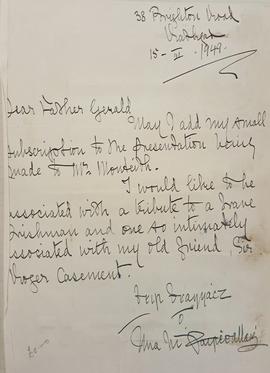 38 Brighton Road
Rathgar
15 - VI - 1949.
Dear Father Gerald
May I add my small
subscription to the presentation being
made to Mr Monteith.
I would like to be
associated with a tribute to a brave
Irishman and one so intimately
associated with my old friend, Sir
Roger Casement.
Úna Ní